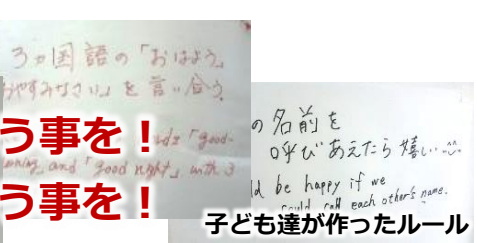 3ヵ国語の「おはよう」
やすみなさい」を言い合う
う事を！
"good-
and "good night" with 3
う事を！
の名前を
呼びあえたら嬉しい
ld be happy if we
could call each other's name.
子ども達が作ったルール